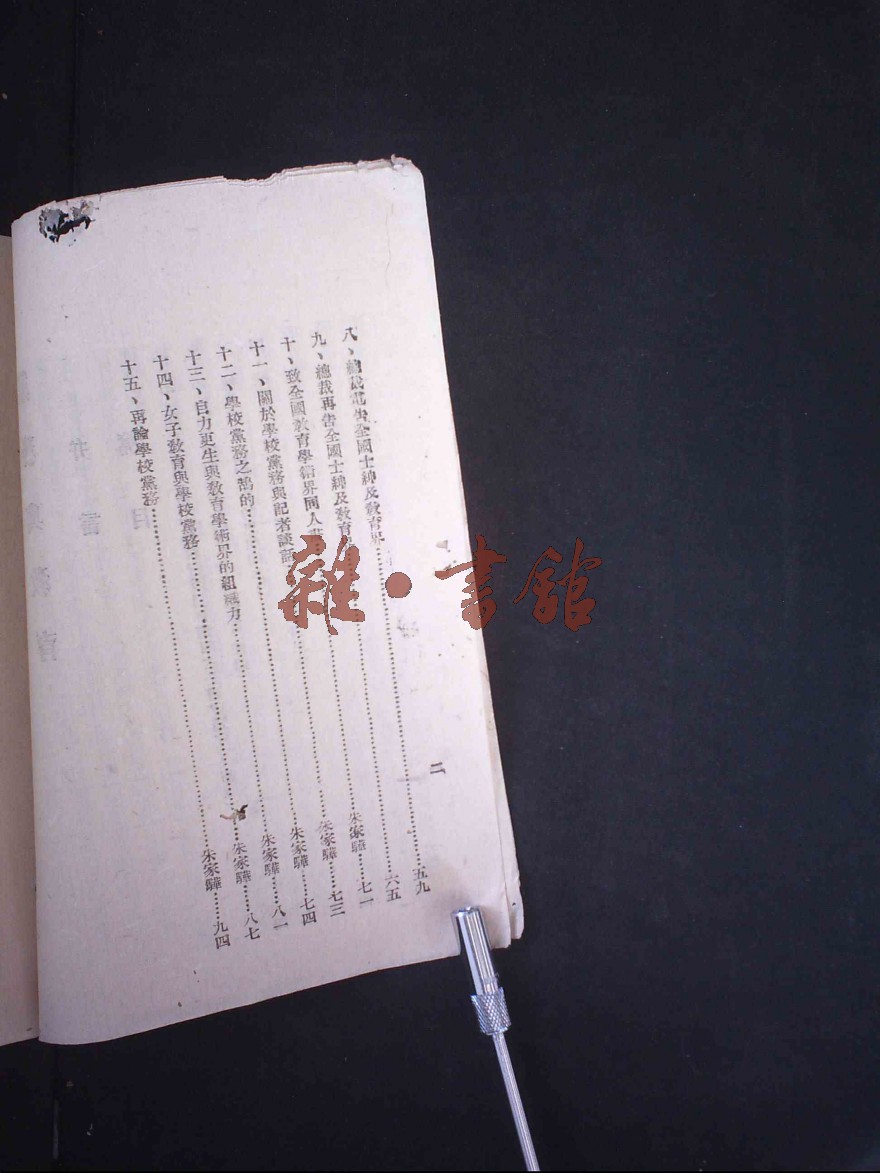 八、總裁電告全國士紳及敎育界……五九
九、總裁再吿全國士紳及敎育……六五
十、致全國敎育學術界同人書……朱家驊……七一
十一、關於學校黨務與記者談話……朱家驊……七三
十二、學校黨務之鵠的……朱家驊……七四
十三、自力更生與敎育學術界的組織力……朱家驊……八一
十四、女子敎育與學校黨務……朱家驊……八七
十五、再論學校黨務……朱家驊……九四
二
雜·書館